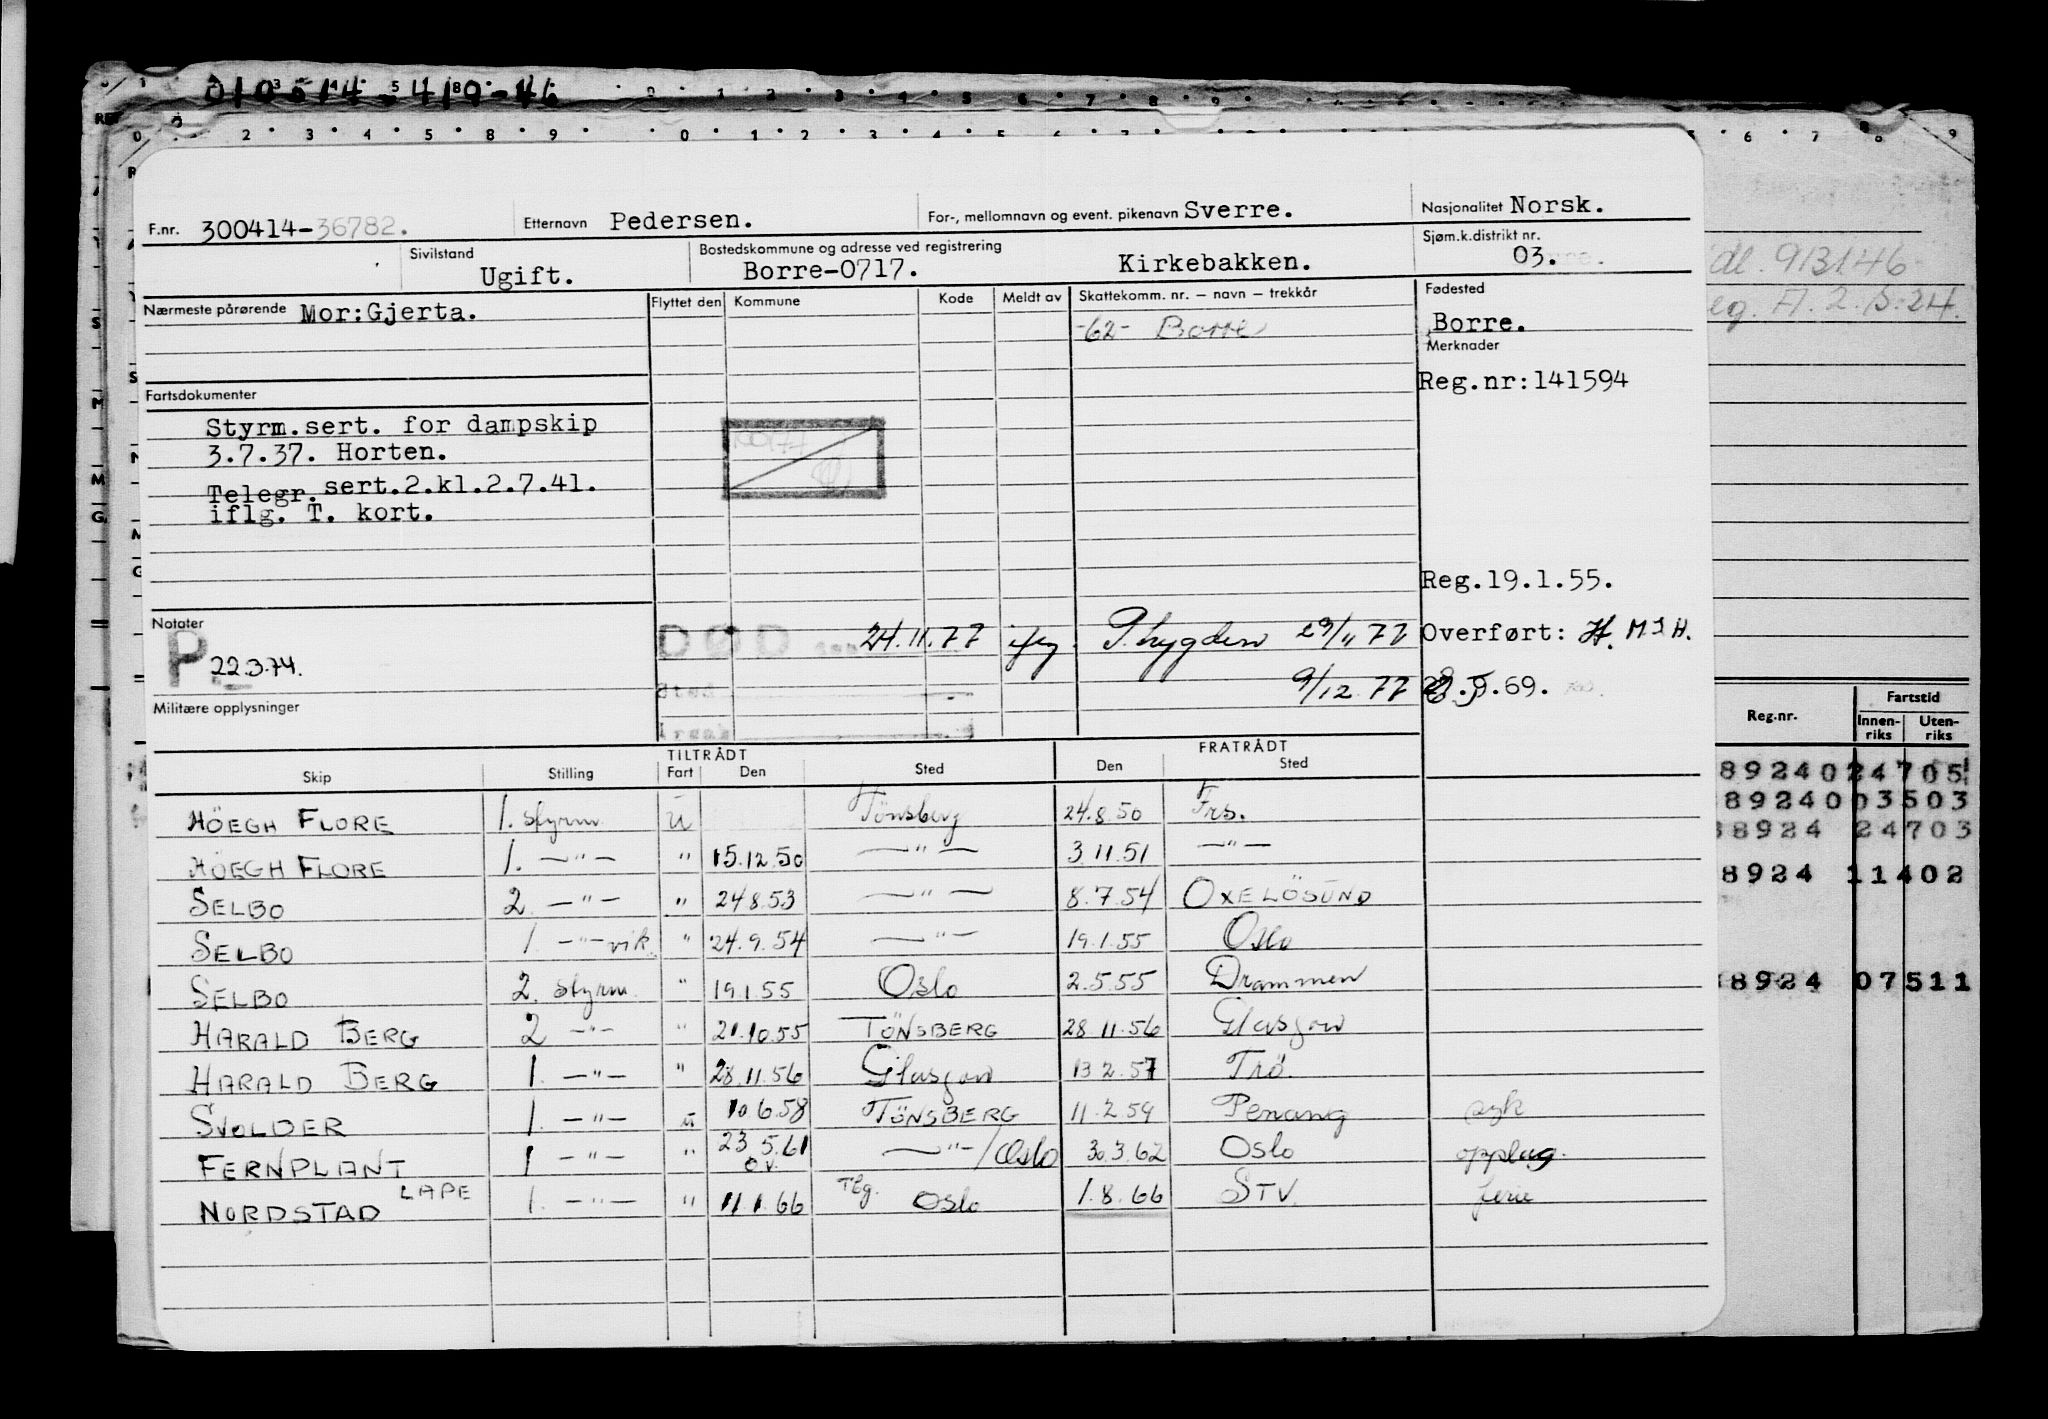 010514-41 -46
F.nr. 300414-36782. Etternavn Pedersen. For-, mellomnavn og event. pikenavn Sverre. Nasjonalitet Norsk.
Sivilstand Ugift. Bostedskommune og adresse ved registrering Borre-0717. Kirkebakken. Sjøm.k.distrikt nr. 03.
Nærmeste pårørende Mor:Gjerta. Flyttet den Kommune Kode Meldt av Skattekomm. nr. – navn – trekkår Fødested
-62- Borre Borre.
Merknader
Reg.nr:141594
Fartsdokumenter
Styrm.sert. for dampskip
3.7.37. Horten.
Telegr.sert.2.kl.2.7.41.
iflg. T. kort.
Reg.19.1.55.
Notater
P 22.3.74.
DØD 24.11.77 iflg. T.hygden 29/11 77 Overført: H. M S H.
9/12 77 .9.69.
Militære opplysninger
TILTRÅDT FRATRÅDT
Skip Stilling Fart Den Sted Den Sted
HÖEGH FLORE 1. styrm u Tönsberg 24.8.50 Frs.
HÖEGH FLORE 1. —"— " 15.12.50 —"— 3.11.51 —"—
SELBO 2. —"— " 24.8.53 —"— 8.7.54 OXELÖSUND
SELBO 1. —"— vik. " 24.9.54 —"— 19.1.55 Oslo
SELBO 2. styrm. " 19.1.55 Oslo 2.5.55 Drammen
HARALD BERG 2 —"— " 21.10.55 TÖNSBERG 28.11.56 Glasgow
HARALD BERG 1. —"— " 28.11.56 Glasgow 13.2.57 Trö.
SVOLDER 1. —"— u 10.6.58 TÖNSBERG 11.2.59 Penang syk
FERNPLANT 1 —"— " 23.5.61 —"—/Oslo 30.3.62 Oslo opplag.
ö.v.
NORDSTAD LAPE 1. —"— " 11.1.66 Tbg. Oslo 1.8.66 STV. ferie
dl. 913146
eg. A. 2.5.24.
Reg.nr. Fartstid
Innenriks Utenriks
892402 4705
892400 3503
8924 24703
8924 11402
8924 07511